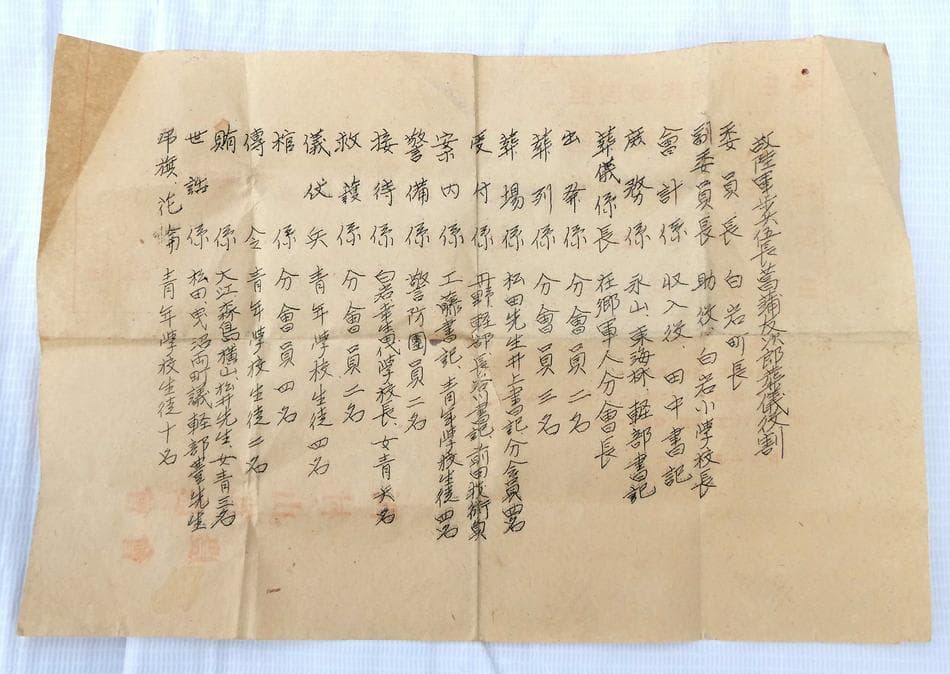 故陸軍歩兵伍長菖蒲友次郎葬儀役割
委員長 白岩町長
副委員長 助役、白岩小学校長
會計係 収入役、田中書記
庶務係 永山、東海林、軽部書記
葬儀係長 在郷軍人分會長
出発係 分會員二名
葬列係 分會員三名
葬場係 松田先生井上書記、分会員四名
受付係 軽部、長谷川書記、前田技術員
案内係 工藤書記、青年学校生徒四名
警備係 警防團員二名
接待係 白岩幸生学校長、女青矢名
救護係 分會員二名
儀仗兵 青年学校生徒四名
棺係 分會員四名
傳令 青年学校生徒二名
賄係 大江森島横山、松井先生、女青三名
世話係 松田、曳沼両町議軽部先生
弔旗、花輪 青年学校生徒十名